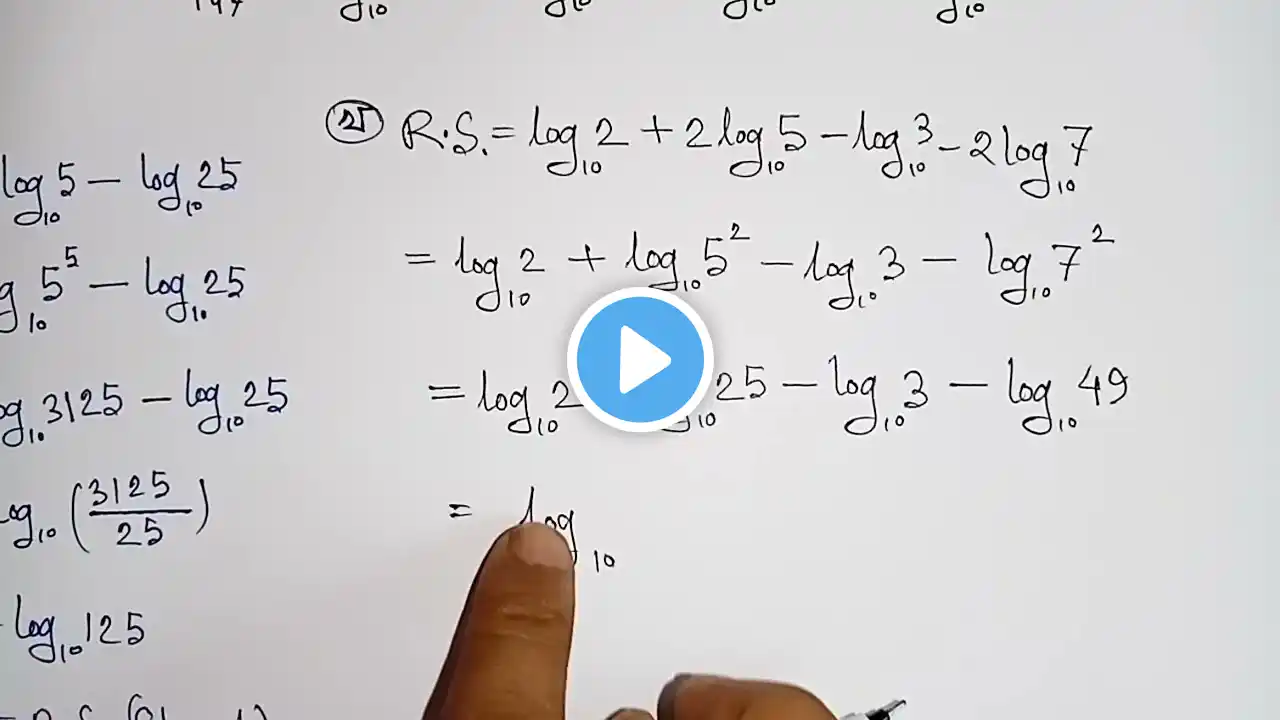 147 10 10 10 10
log₁₀5 − log₁₀25
5⁵ − log₁₀25
3125 − log₁₀25
(3125/25)
log₁₀125
R.S. = log₁₀2 + 2log₁₀5 − log₁₀3 − 2log₁₀7
= log₁₀2 + log₁₀5² − log₁₀3 − log₁₀7²
= log₁₀2 ₁₀25 − log₁₀3 − log₁₀49
= log₁₀